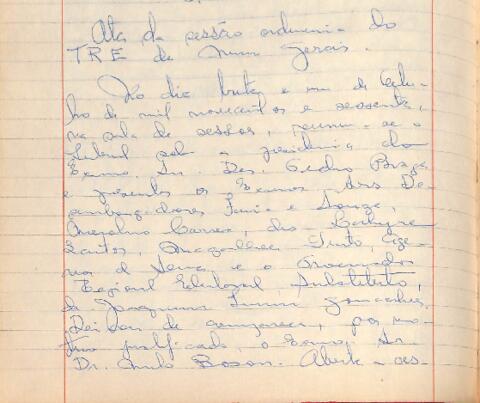 Ata da sessão ordinária do
TRE de Minas Gerais.
No dia trinta e um de
de mil novecentos e sessenta,
na sala de sessões, reuniu-se o
Tribunal sob a presidência do
Exmo. Sr. Des. Pedro Braga
e presentes os Exmos. Srs. De-
sembargadores Faria e Souza,
Santos, Magalhães Pinto,
e o Procurador
Regional Eleitoral, Substituto,
Dr. Joaquim Gonçalves.
Deixou de comparecer, por mo-
tivo justificado, o Exmo. Sr.
Dr. Boson. Aberta a ses-